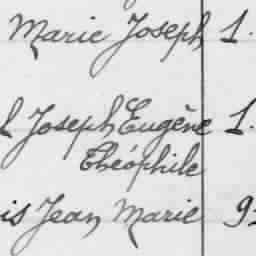 Marie Joseph 1.
l Joseph Eugène 1.
Théophile
is Jean Marie 9